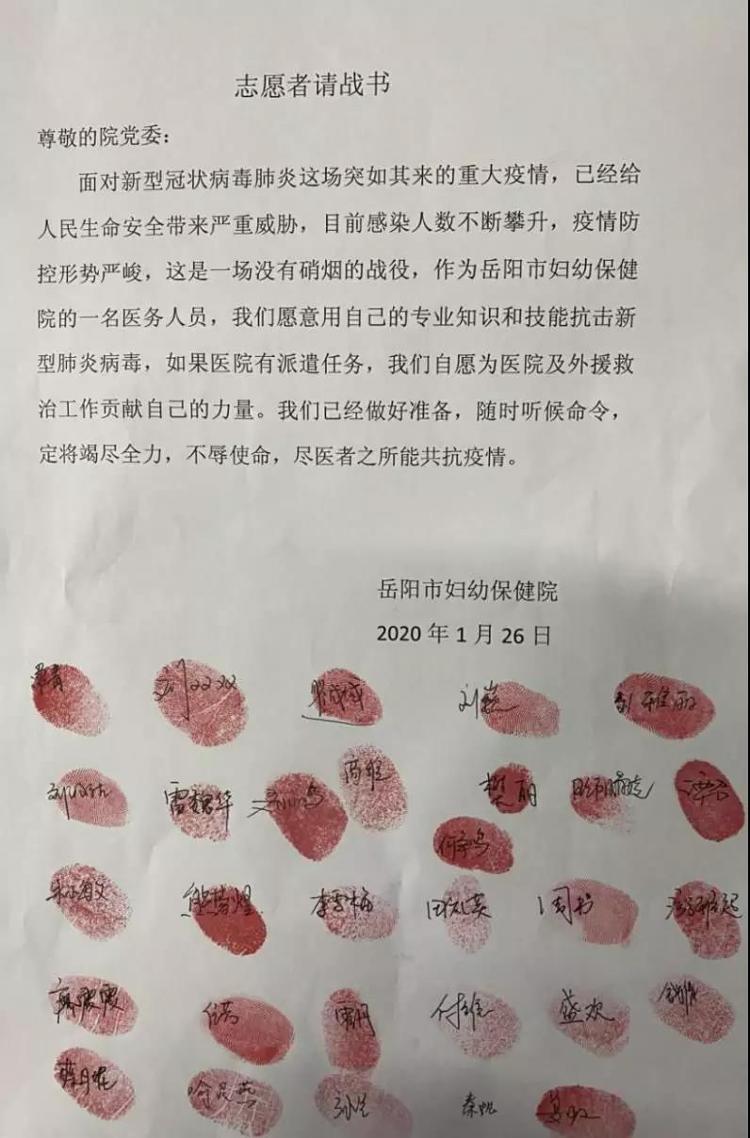 志愿者请战书
尊敬的院党委：
面对新型冠状病毒肺炎这场突如其来的重大疫情，已经给
人民生命安全带来严重威胁，目前感染人数不断攀升，疫情防
控形势严峻，这是一场没有硝烟的战役，作为岳阳市妇幼保健
院的一名医务人员，我们愿意用自己的专业知识和技能抗击新
型肺炎病毒，如果医院有派遣任务，我们自愿为医院及外援救
治工作贡献自己的力量。我们已经做好准备，随时听候命令，
定将竭尽全力，不辱使命，尽医者之所能共抗疫情。
岳阳市妇幼保健院
2020 年 1 月 26 日
刘双双
刘雅丽
樊丽
李雪梅
周书
雷丹
付维
盛欢
秦帆